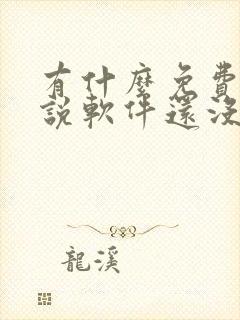 有什麼免費
說軟件還沒
龍溪